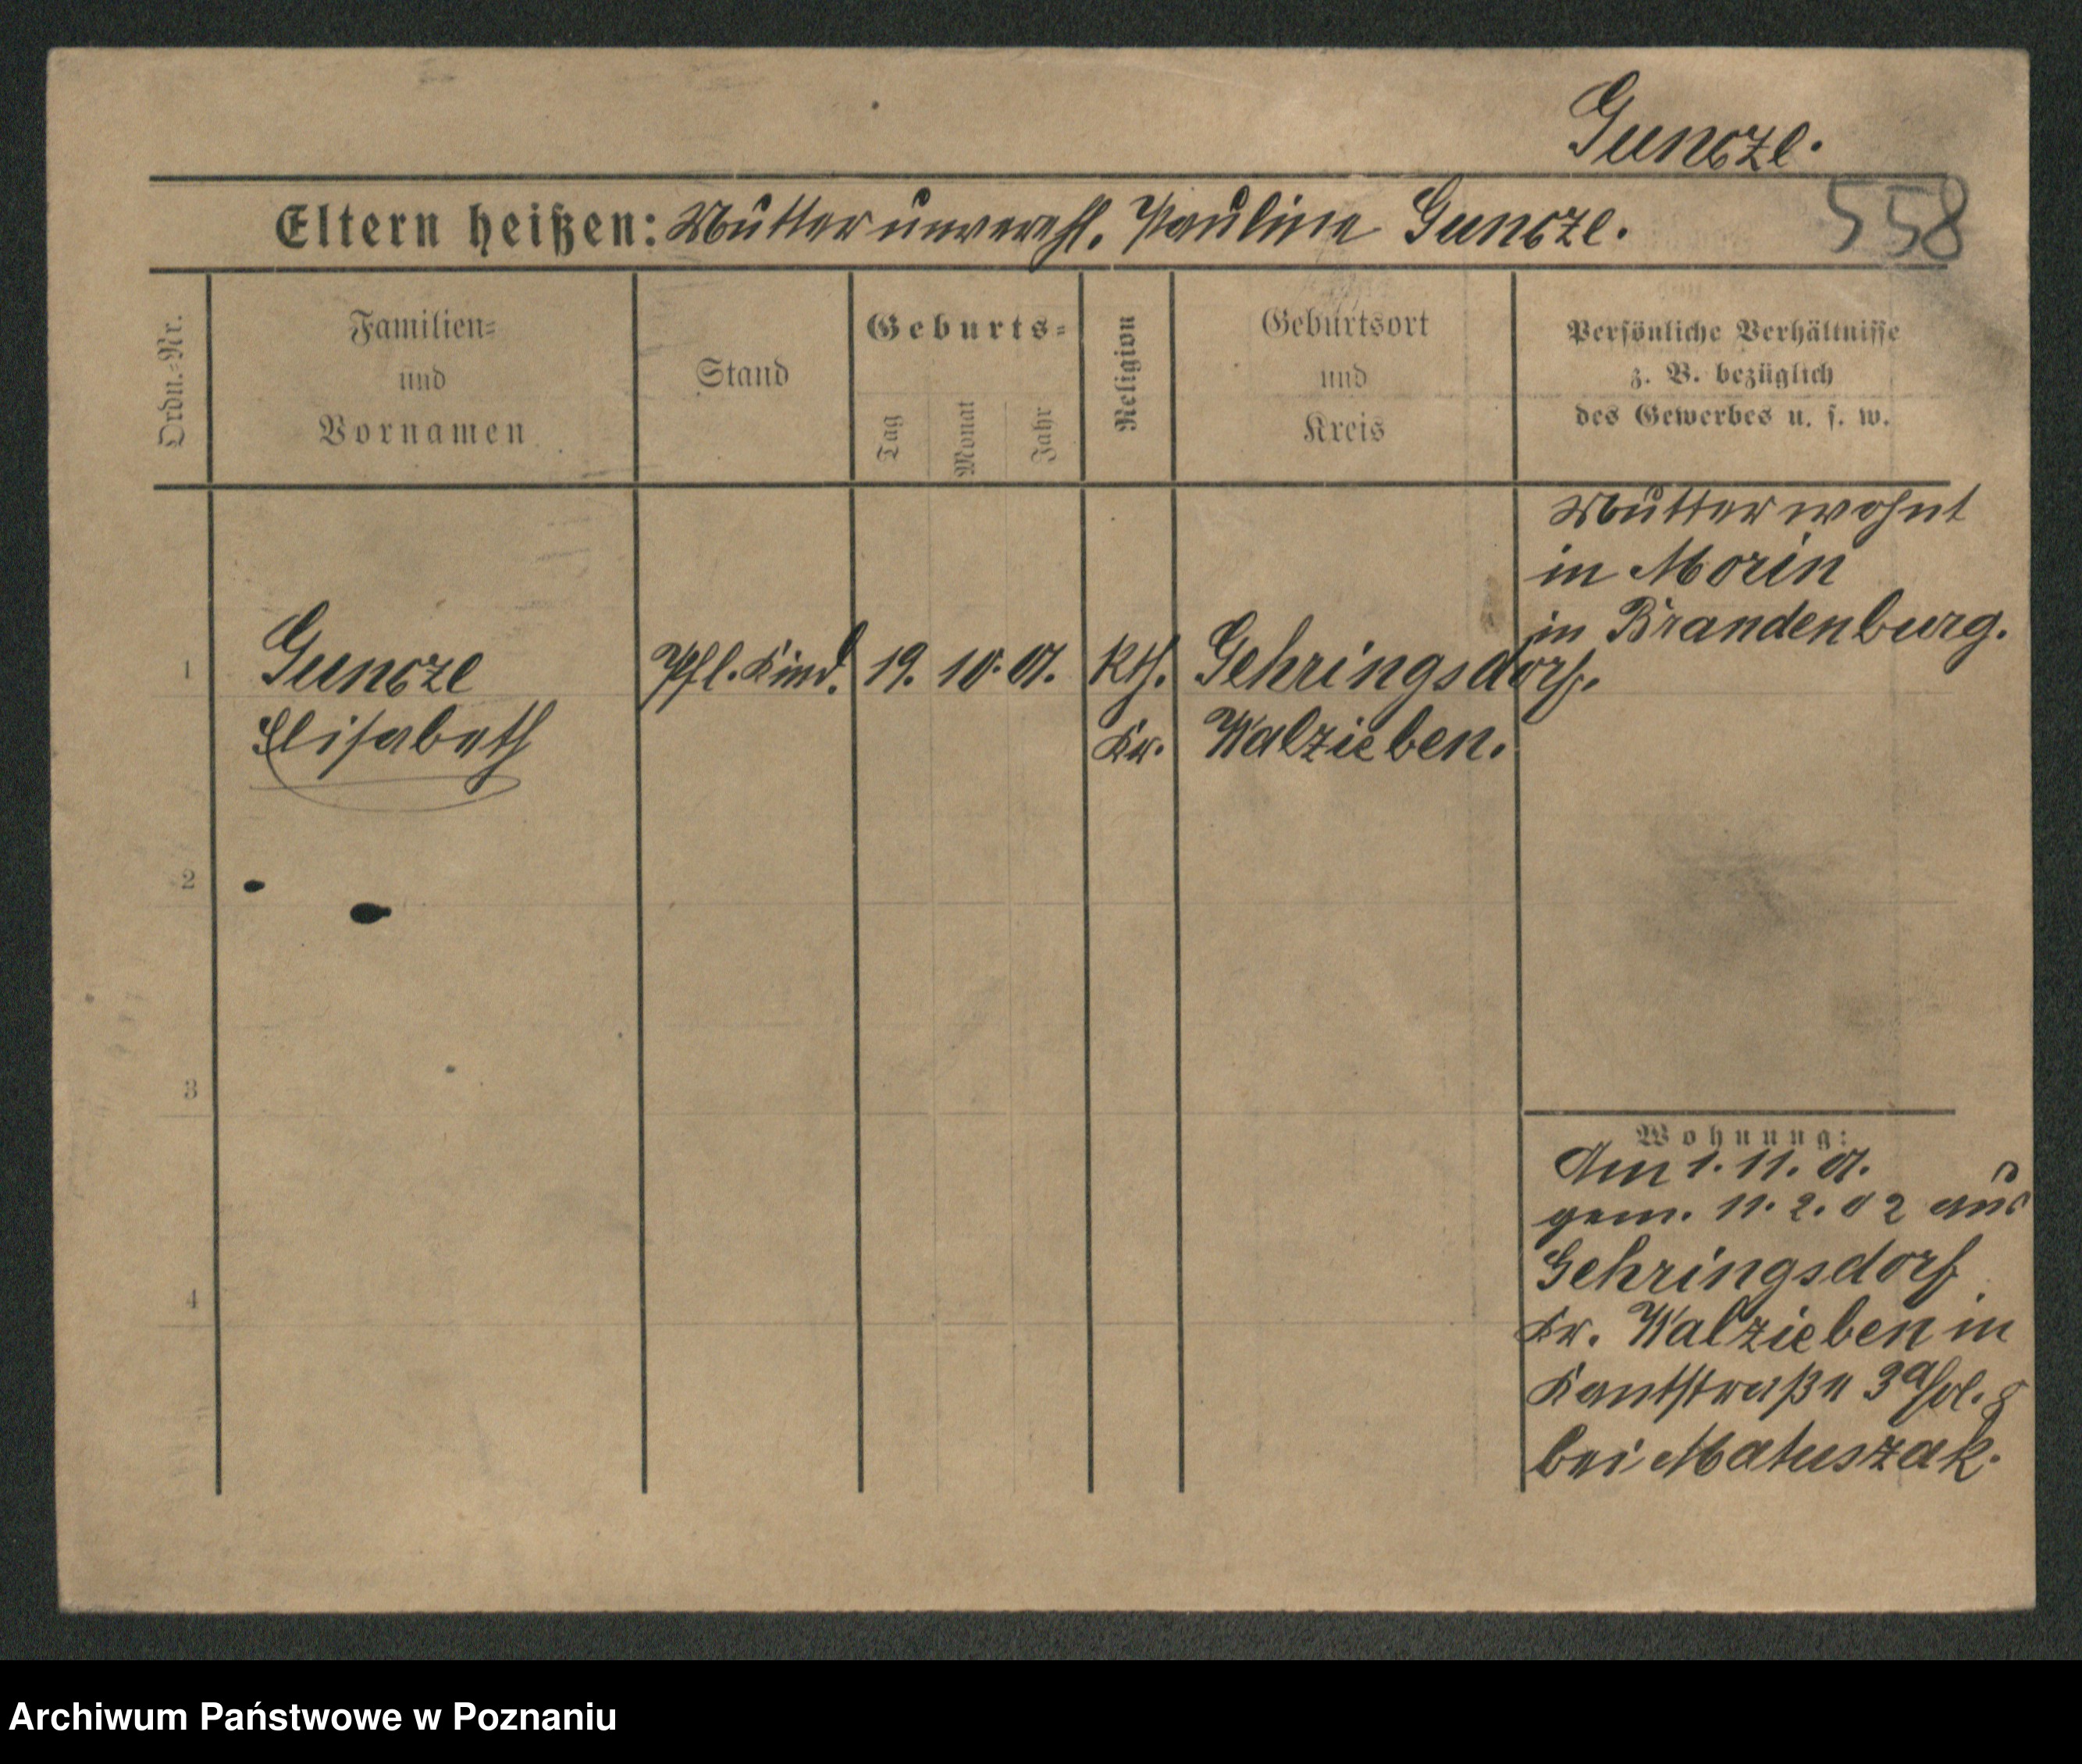 Gunczl.
Eltern heißen: Mutter unverehl. Pauline Gunczl.
558
Ordn.-Nr.
Familien-
und
Vornamen
Stand
Geburts-
Tag
Monat
Jahr
Religion
Geburtsort
und
Kreis
Persönliche Verhältnisse
z. B. bezüglich
des Gewerbes u. s. w.
Mutter wohnt
in Morin
in Brandenburg.
1
Gunczl
Pfl. Kind.
19. 10. 01.
Kth.
Gehringsdorf.
Elisabeth
Kr. Walzieben.
2
3
4
Wohnung:
Am 1. 11. 01.
gem. 11. 2. 02 aus
Gehringsdorf
Kr. Walzieben in
Kantstraße 3a
bei Matuszak.
Archiwum Państwowe w Poznaniu